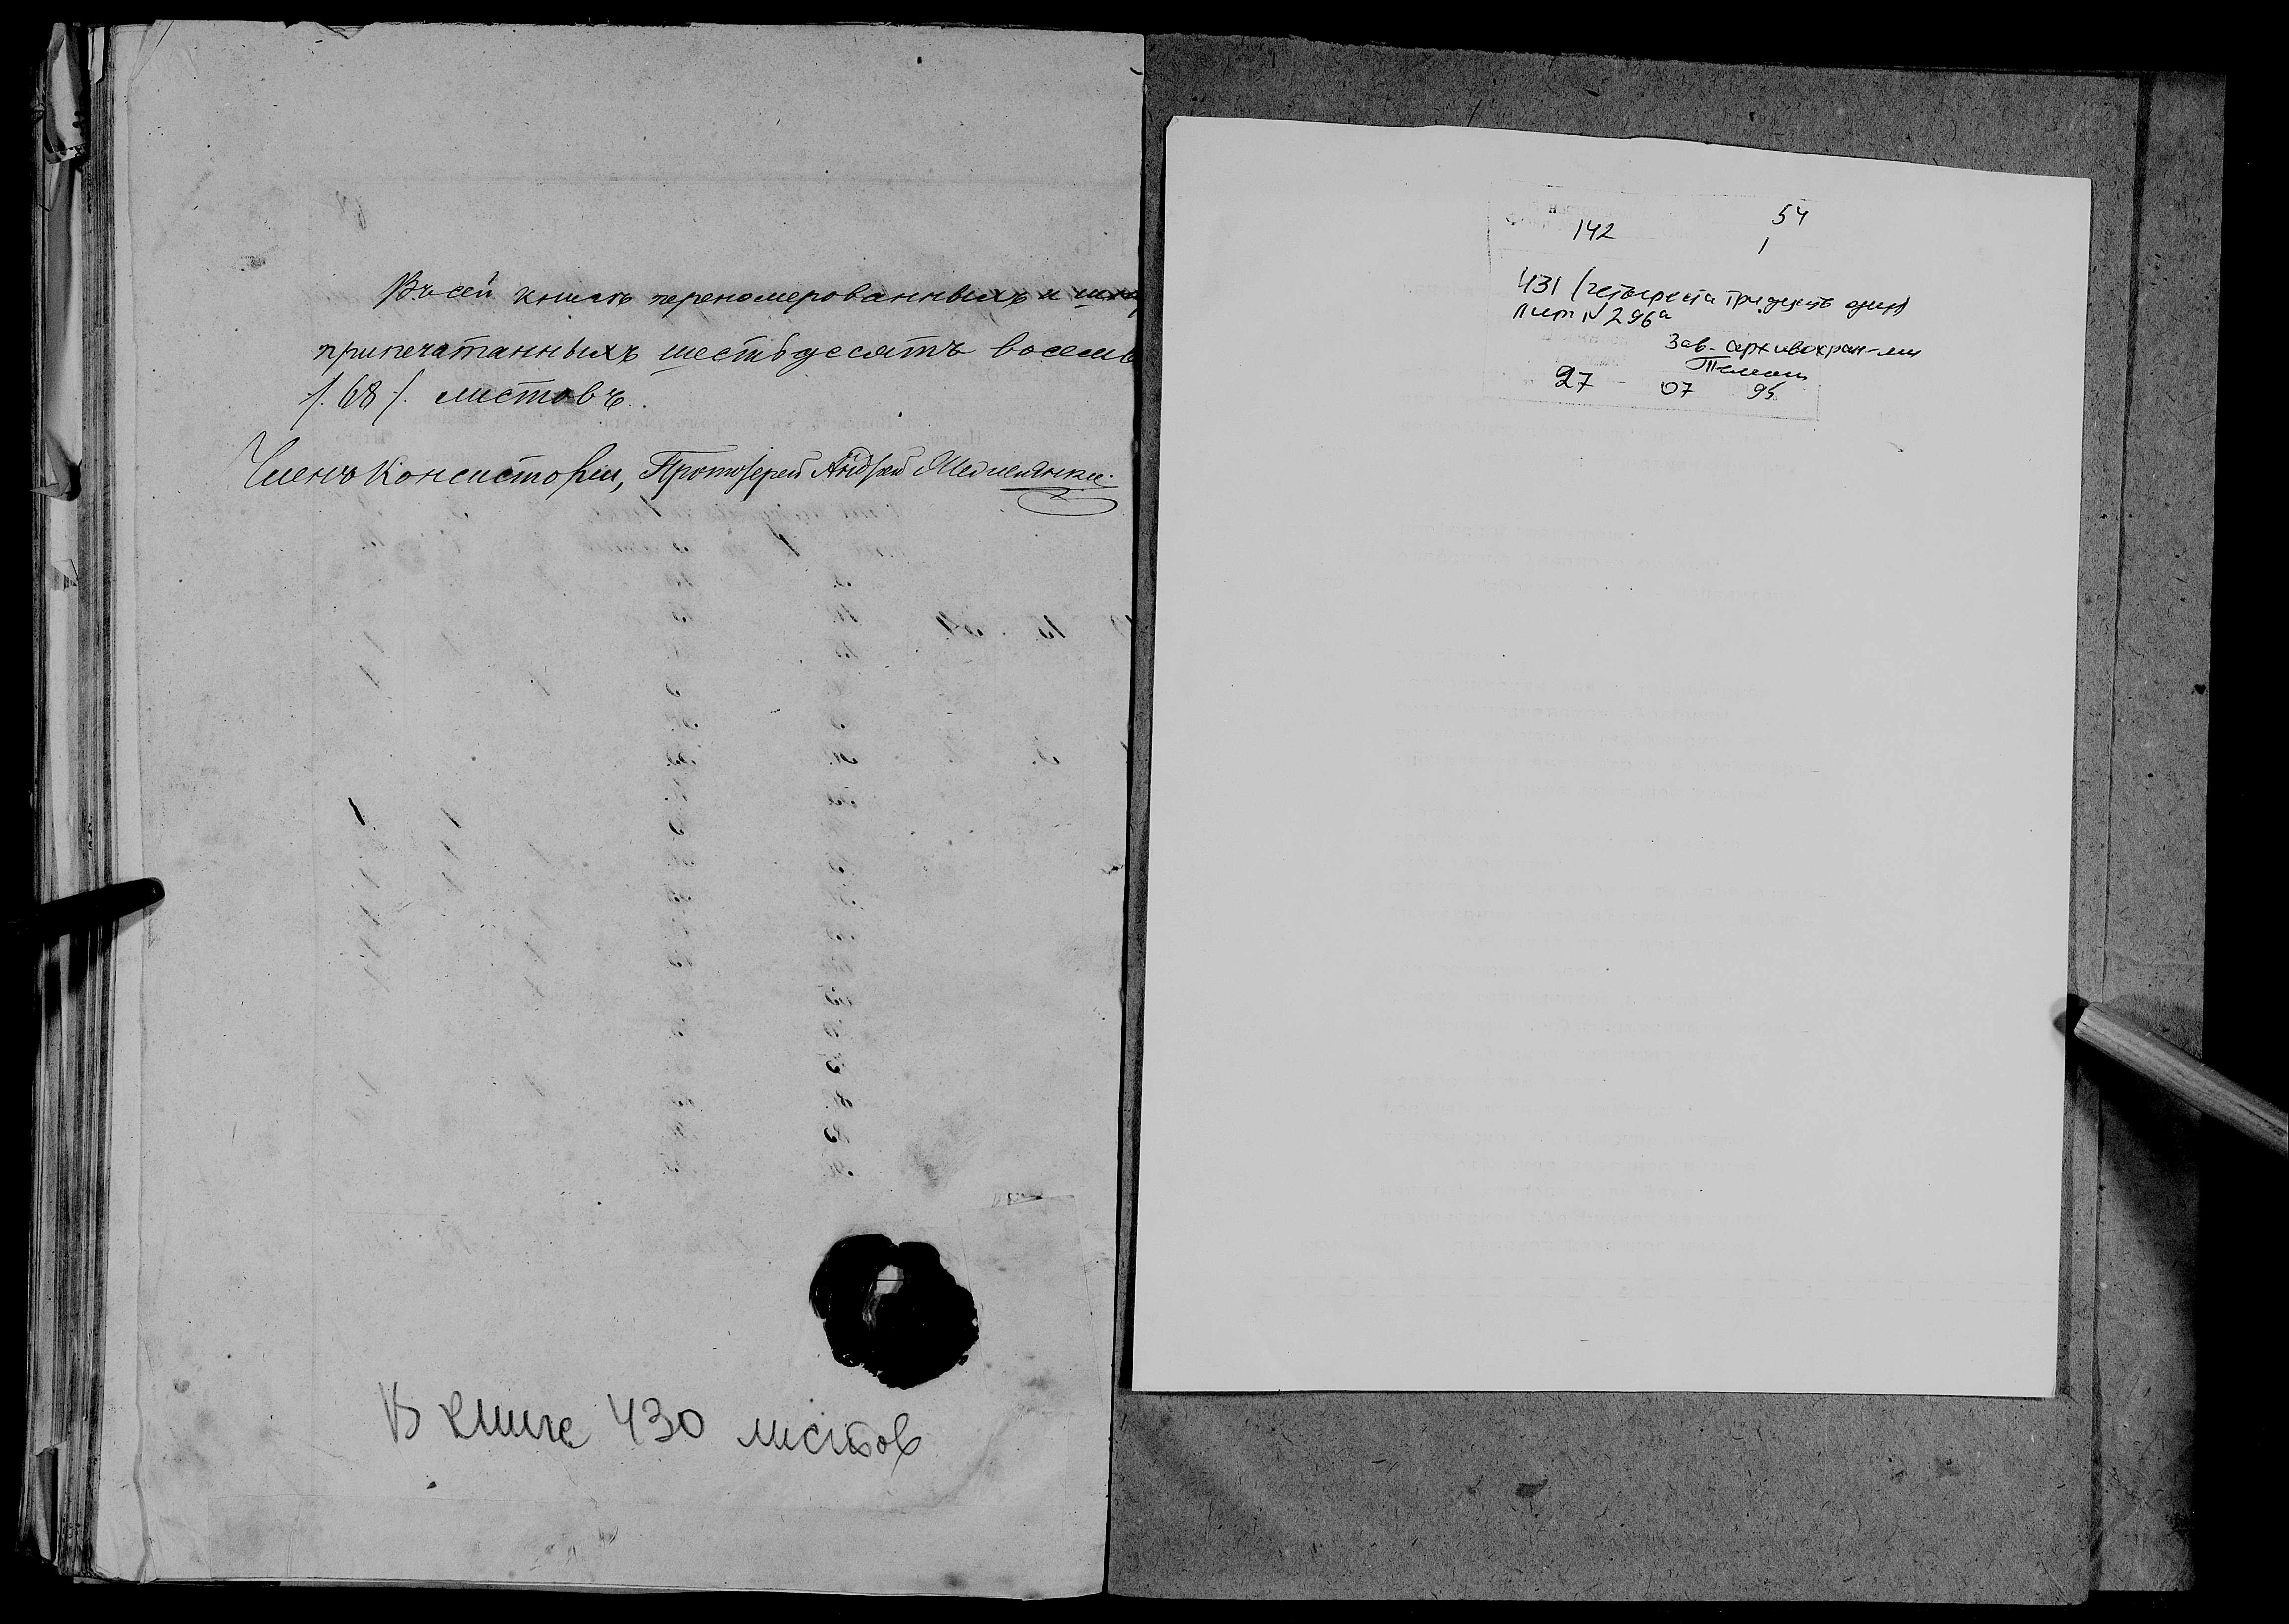 Въ сей книгѣ переномерованныхъ и
припечатанныхъ шестьдесятъ восемь
/. 68 /. листовъ.
Членъ Консисторіи, Протоіерей Андрей
В книге 430 листов
54
142 1
431 (четыреста тридцать один)
лит N 296а
Зав. архивохран-ем
27 - 07 95